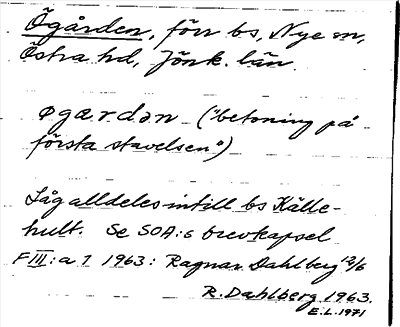 Ögården, förr bs, Nye sn,
Östra hd, Jönk. län.
øga.rdən ("betoning på
första stavelsen")
Låg alldeles intill bs Källe-
hult. Se SOA:s brevkapsel
F III:a 1 1963: Ragnar Dahlberg 12/6
R. Dahlberg 1963.
E.L. 1971